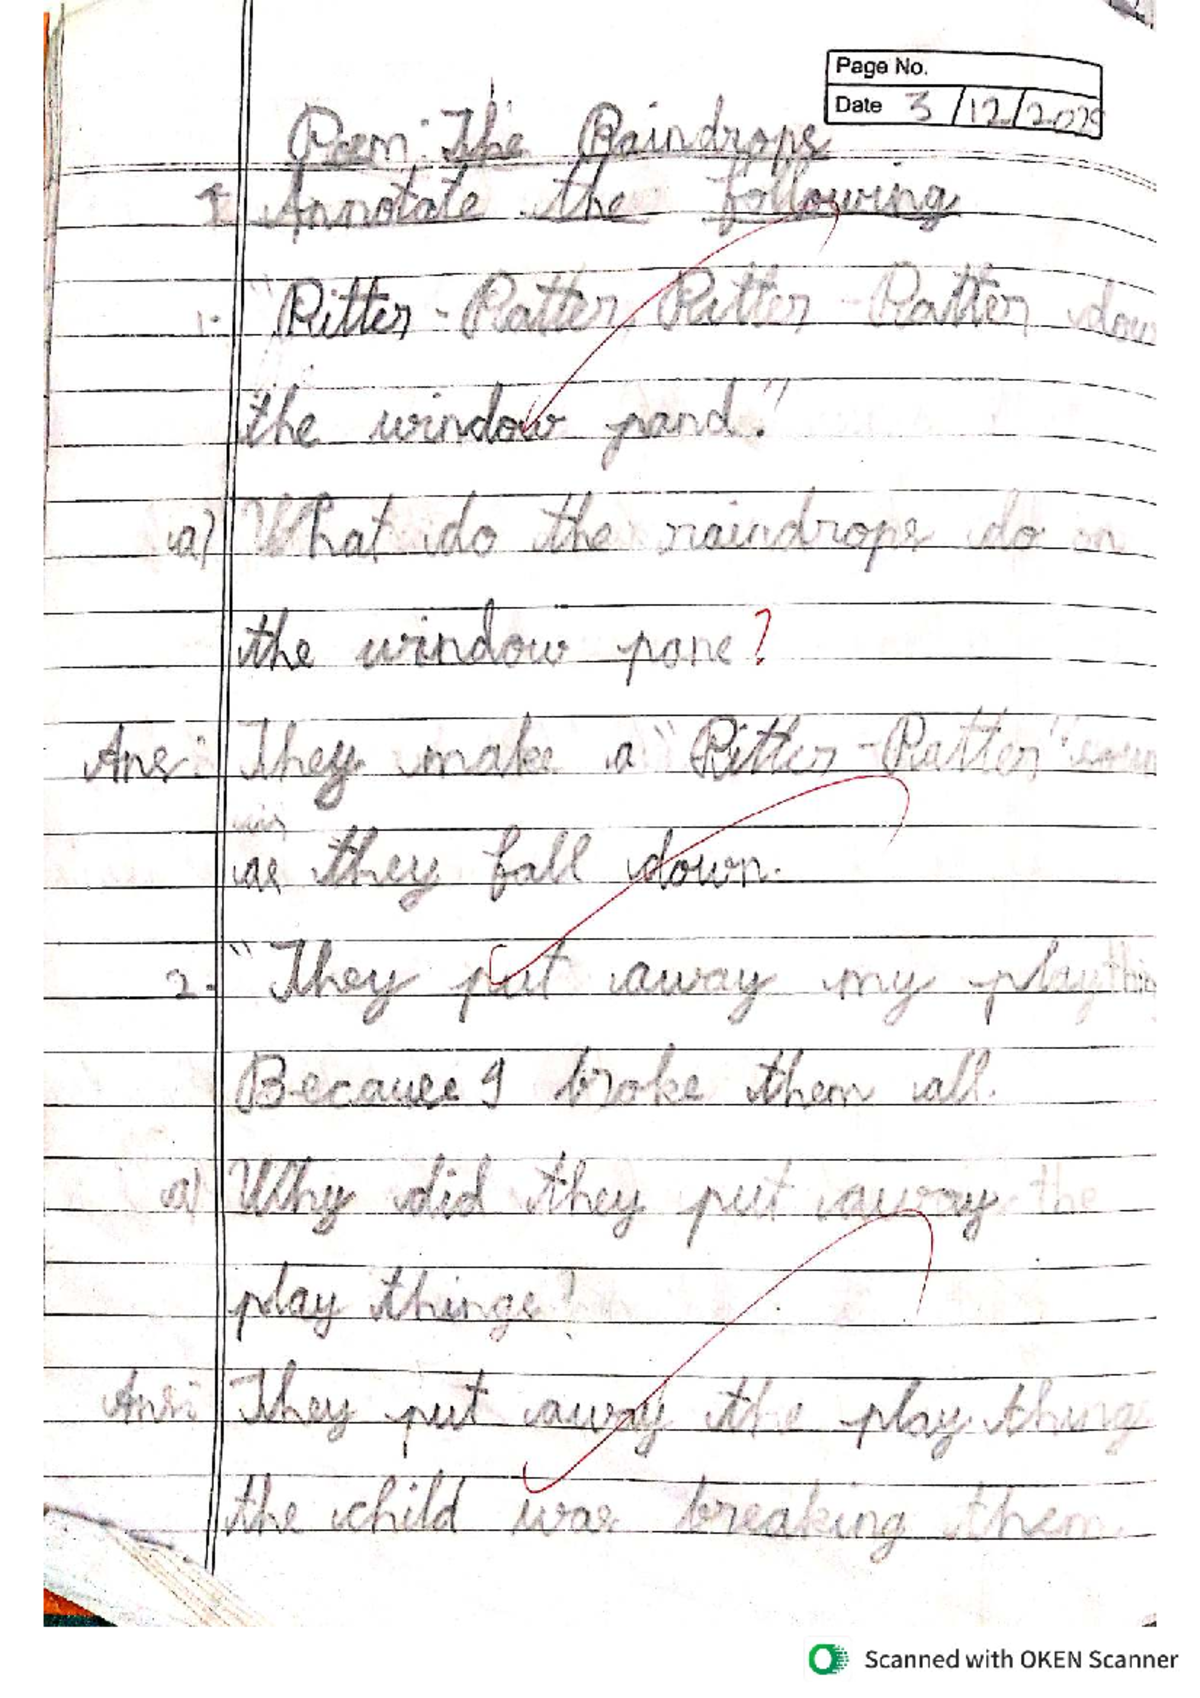 Page No.
Date 3/12/2025
Poem: The Raindrops
I Annotate the following
1. "Pitter - Patter, Pitter - Patter down
the window pand."
a) What do the raindrops do on
the window pane?
Ans: They make a "Pitter - Patter"
as they fall down.
2. "They put away my plaything
Because I broke them all.
a) Why did they put away the
play things?
Ans: They put away the play thing
the child was breaking them.
Scanned with OKEN Scanner